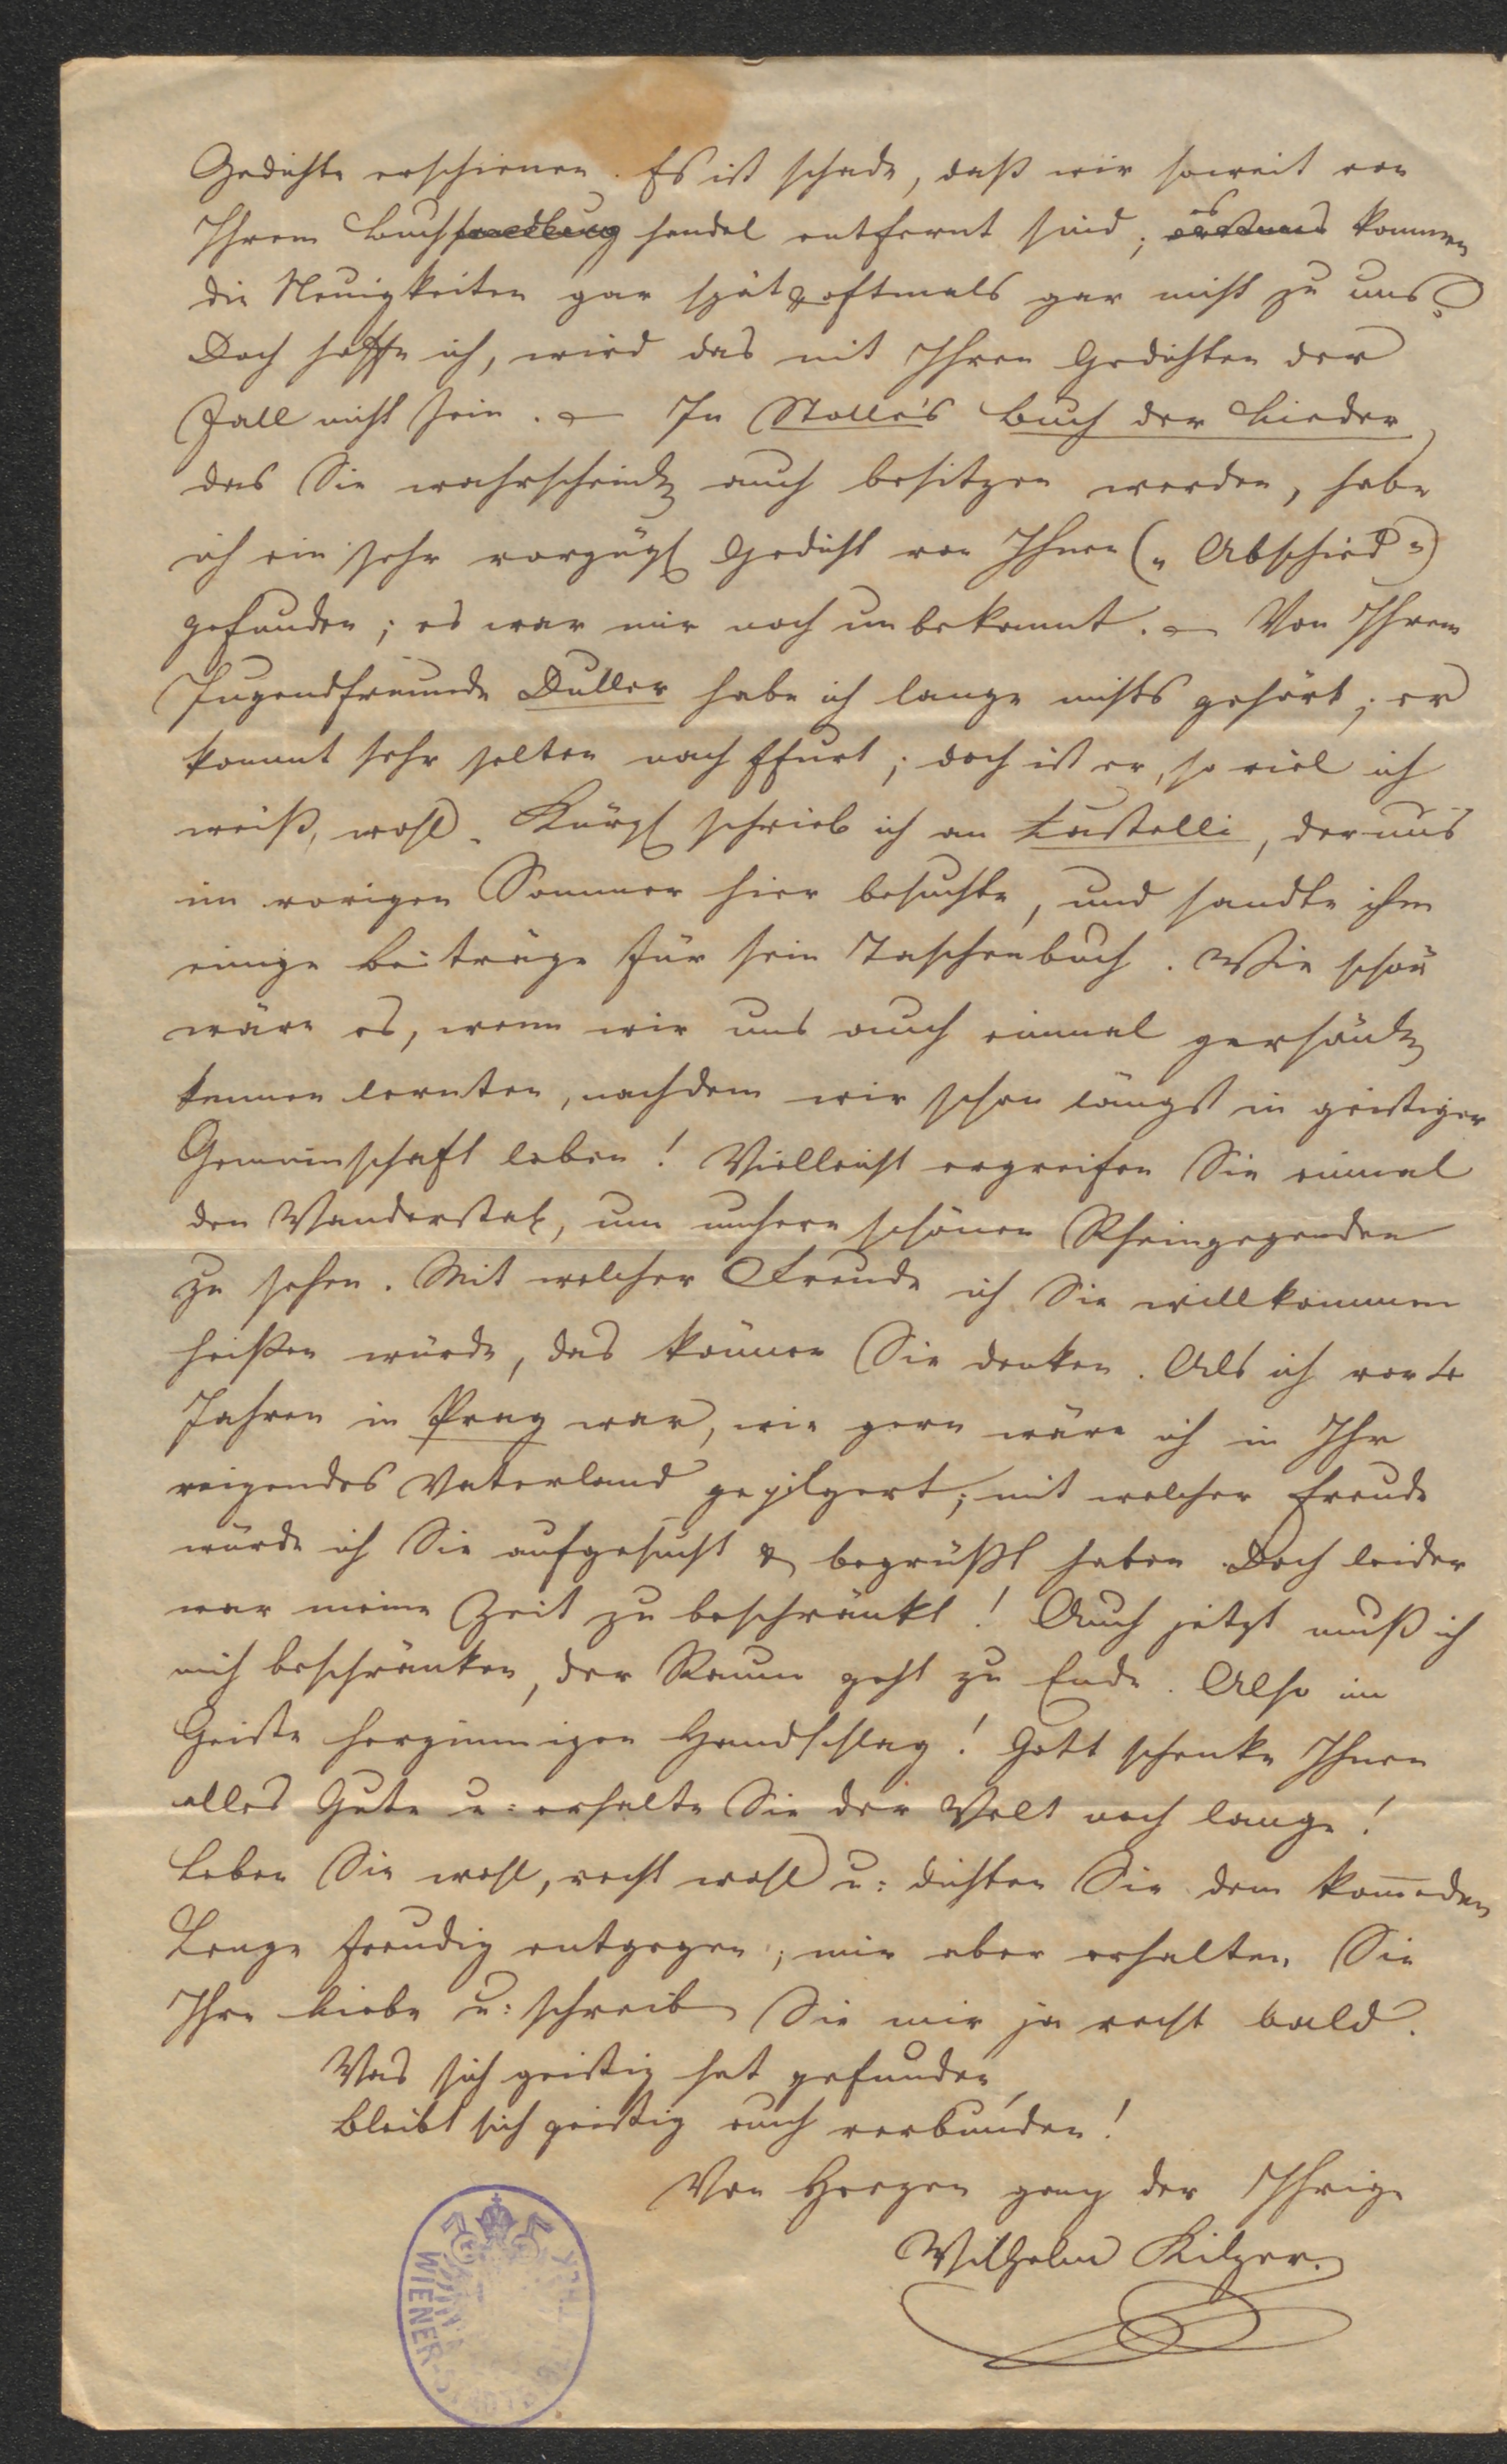 Gedichte erschienen. Es ist schade, daß wir soweit von
Ihrem Buchhandlung handel entfernt sind; es kommen
die Neuigkeiten gar spät & oftmals gar nicht zu uns.
Doch hoffe ich, wird das mit Ihren Gedichten der
Fall nicht sein. — In Stolle's Buch der Lieder,
das Sie wahrscheinl auch besitzen werden, habe
ich ein sehr vorzügl Gedicht von Ihnen („Abschied")
gefunden; es war mir noch unbekannt. — Von Ihrem
Jugendfreunde Duller habe ich lange nichts gehört; er
kommt sehr selten nach Ffurt; doch ist er, so viel ich
weiß, wohl. Kürzl schrieb ich an Castelli, der uns
im vorigen Sommer hier besuchte, und sandte ihm
einige Beiträge für sein Taschenbuch. Wie schön
wäre es, wenn wir uns auch einmal persönl
kennen lernten, nachdem wir schon längst in geistiger
Gemeinschaft leben! Vielleicht ergreifen Sie einmal
den Wanderstab, um unsere schönen Rheingegenden
zu sehen. Mit welcher Freude ich Sie willkommen
heißen würde, das können Sie denken. Als ich vor 4
Jahren in Prag war, wie gern wäre ich in Ihr
reizendes Vaterland gepilgert; mit welcher Freude
würde ich Sie aufgesucht & begrüßt haben. Doch leider
war meine Zeit zu beschränkt! Auch jetzt muß ich
mich beschränken, der Raum geht zu Ende. Also im
Geiste herzinnigen Handschlag! Gott schenke Ihnen
alles Gute u: erhalte Sie der Welt noch lange!
Leben Sie wohl, recht wohl u: dichten Sie dem kom̅enden
Lenze freudig entgegen; mir aber erhalten Sie
Ihre Liebe u: schreiben Sie mir ja recht bald.
Was sich geistig hat gefunden,
Bleibt sich geistig auch verbunden!
Von Herzen ganz der Ihrige
Wilhelm Kilzer.
WIENER-